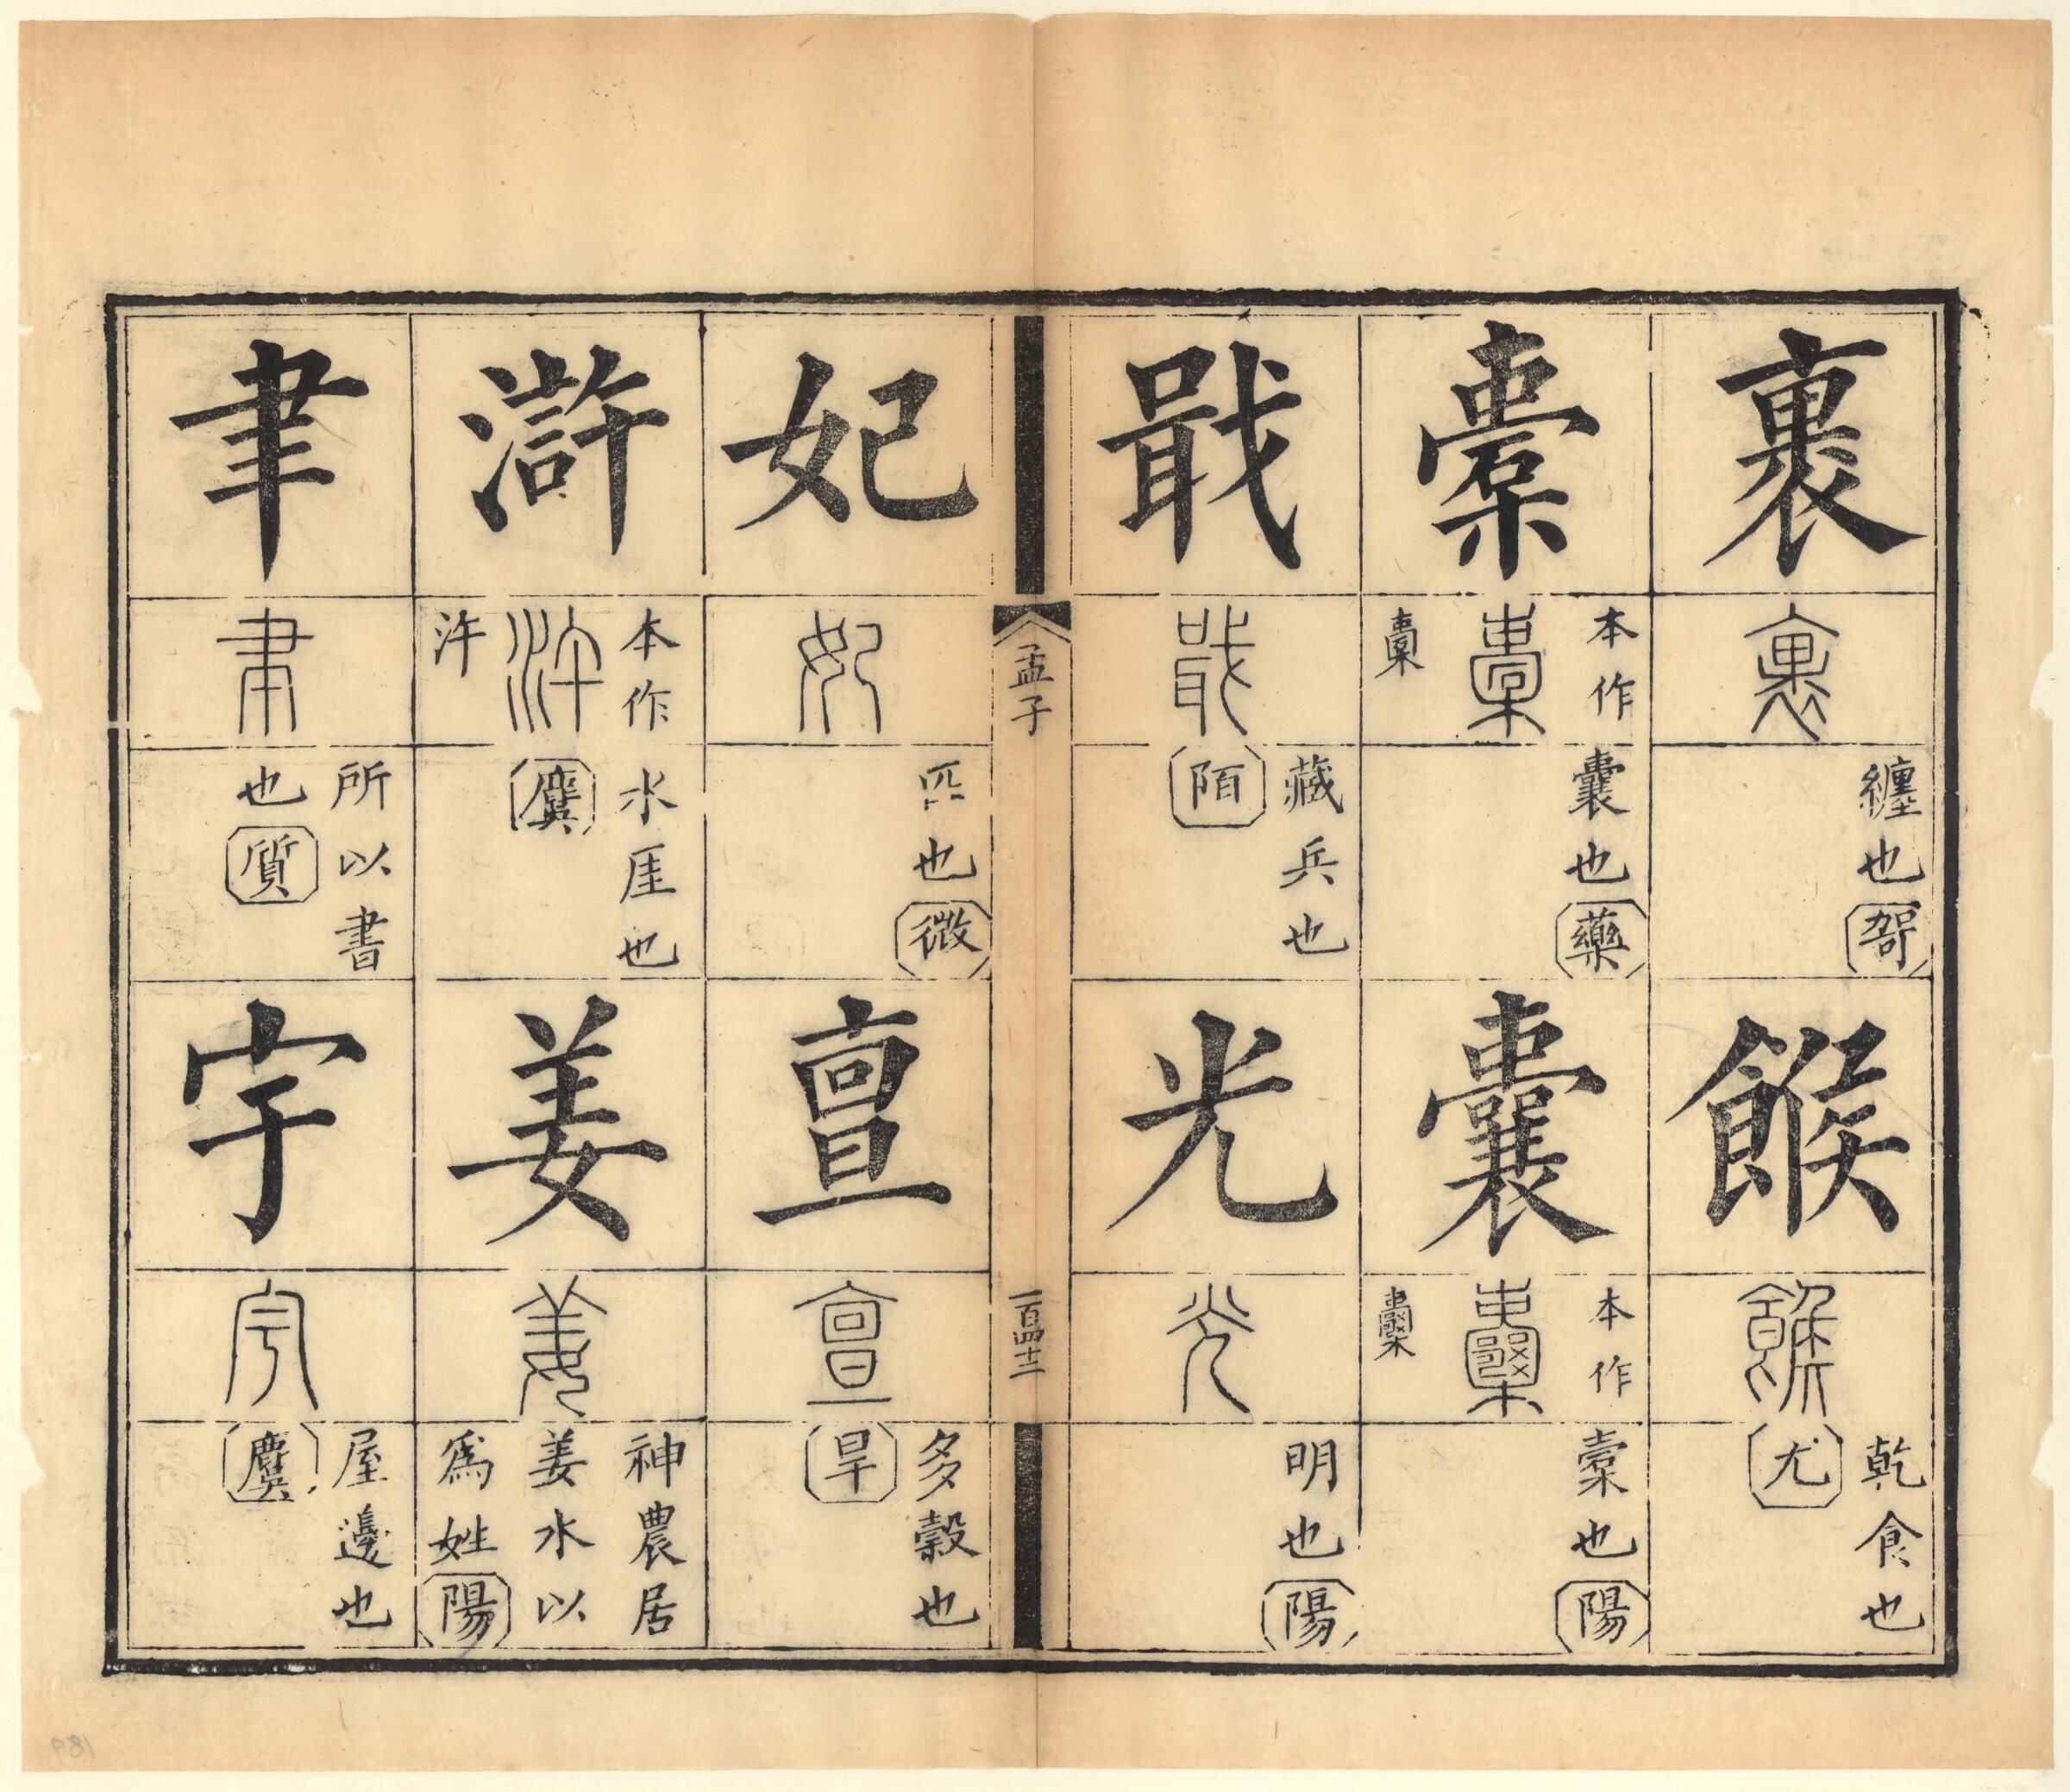 裹
纏也 哿
餱
乾食也 尤
橐
本作
囊也 藥
囊
本作
橐也 陽
戢
藏兵也 陌
光
明也 陽
孟子
一百四十二
妃
匹也 微
亶
多穀也 旱
滸
本作
汻
水厓也 麌
姜
神農居
姜水以
爲姓 陽
聿
所以書
也 質
宇
屋邊也 麌